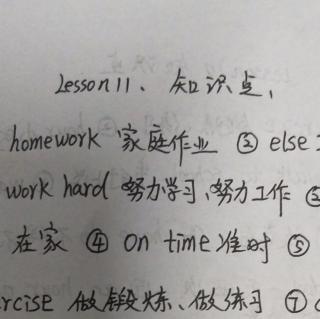 Lesson 11、知识点,
homework 家庭作业 ② else
work hard 努力学习、努力工作 ③
在家 ④ on time 准时 ⑤
rcise 做锻炼、做练习 ⑦